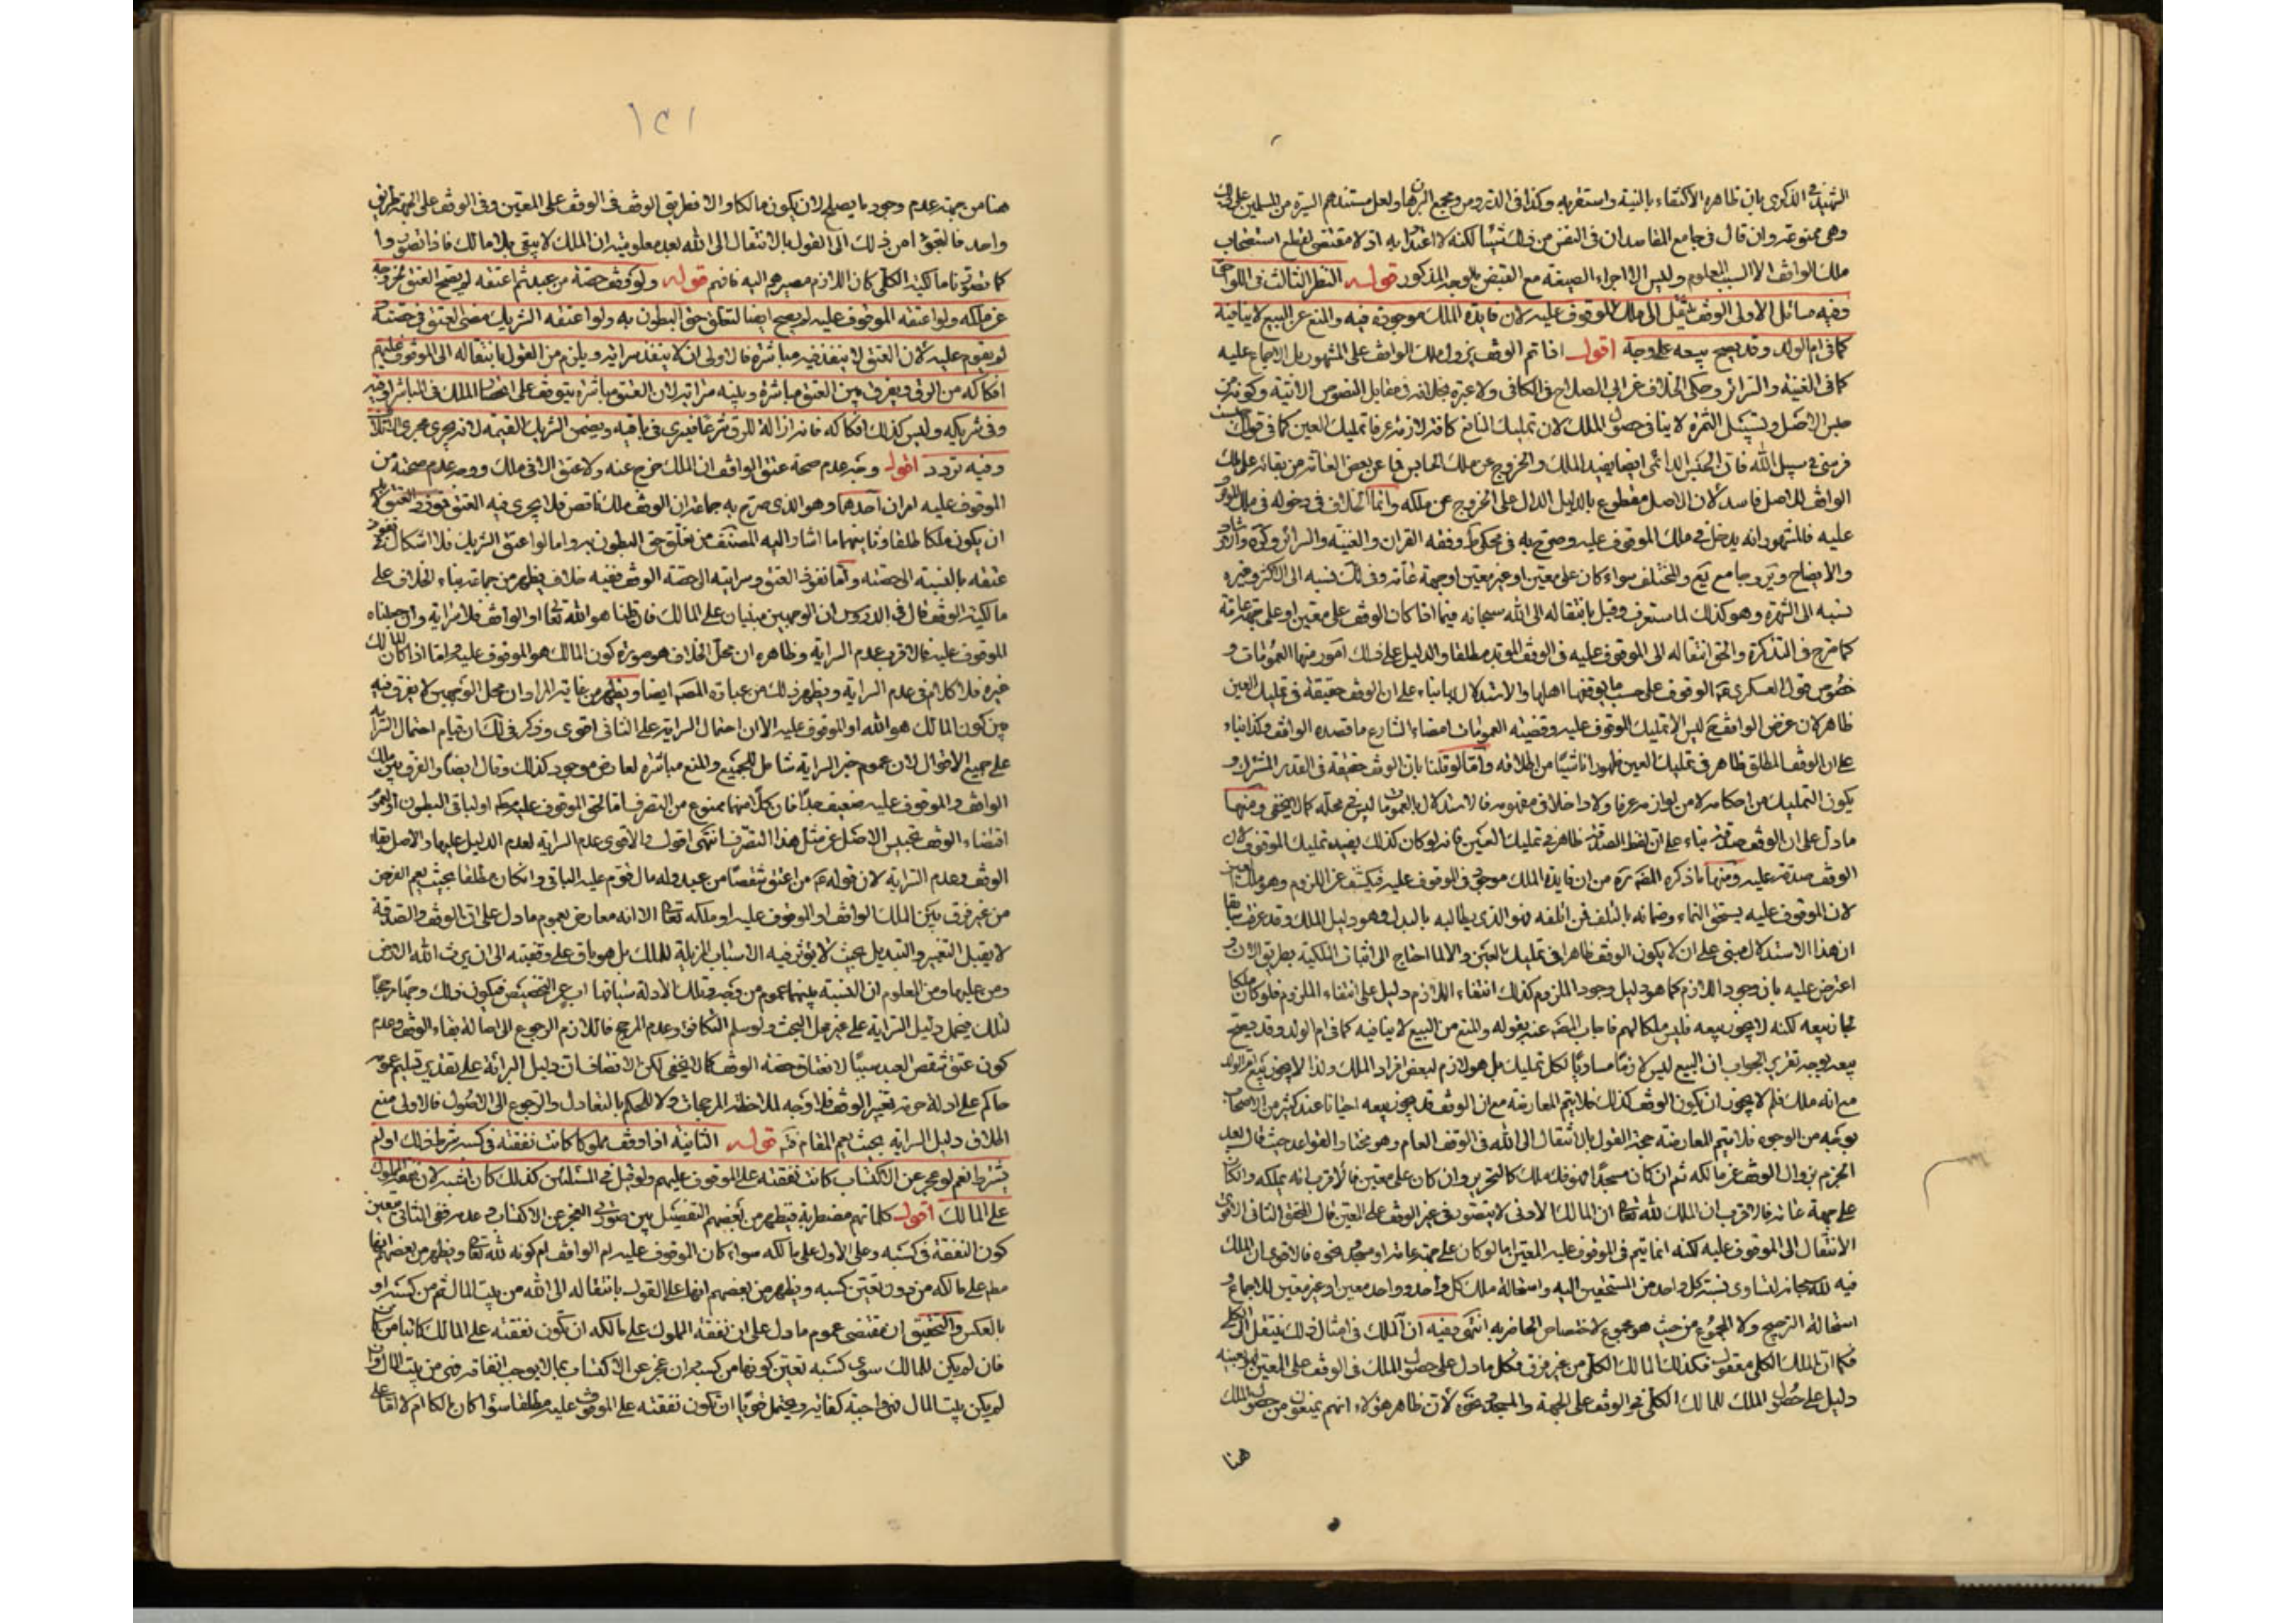 الشهيد في الذكرى بان ظاهره الاكتفاء بالنية واستقر به وكذا في الدروس ومجمع البرهان ولعل مستندهم السيرة من المسلمين على ذلك
وهى ممنوعة وان قال في جامع المقاصد ان في النفس من ذلك شيئا لكنه لا اعتداد به اذ لا مقتضى لقطع استصحاب
ملك الواقف الا السبب المعلوم وليس الا اجراء الصيغة مع القبض بالوجه المذكور قوله النظر الثالث في اللواحق
وفيه مسائل الاولى الوقف ينتقل الى ملك الموقوف عليه لان فايدة الملك موجودة فيه والمنع عن البيع لا ينافيه
كما في ام الولد وقد يصح بيعه على وجه اقول اذا تم الوقف يزول ملك الواقف على المشهور بل الاجماع عليه
كما في الغنية والسرائر وحكى الخلاف عن ابى الصلاح في الكافى ولا عبرة بخلافه في مقابل النصوص الاتية وكونه من
حبس الاصل وتسبيل الثمرة لا ينافى حصول الملك لان تمليك المنافع كافة لازمه عرفا تمليك العين كما في قولك حبست
فرسى في سبيل الله فان الحبس الدائمى ايضا يفيد الملك والخروج عن ملك الحابس فما عن بعض العامة من بقائه على ملك
الواقف للاصل فاسد لان الاصل مقطوع بالدليل الدال على الخروج عن ملكه وانما الخلاف في دخوله في ملك الموقوف
عليه فالمشهور انه يدخل في ملك الموقوف عليه وصرح به في محكى ط وفقه القران والغنية والسرائر وكره والارشاد
والايضاح وير وجامع يع والمختلف سواء كان على معين او غير معين او جهة عامة وفى لك نسبه الى الاكثر وغيره
نسبه الى الشهرة وهو كذلك لما ستعرف وقيل بانتقاله الى الله سبحانه فيما اذا كان الوقف على معين او على جهة عامة
كما صرح في التذكرة والحق انتقاله الى الموقوف عليه في الوقف المؤبد مطلقا والدليل على ذلك امور منها العمومات و
خصوص قول العسكرى ع الوقوف على حسب ما يوقفها اهلها والاستدلال بها بناء على ان الوقف حقيقة في تمليك العين
ظاهر لان غرض الواقف ح ليس الا تمليك الموقوف عليه وقضية العمومات امضاء الشارع ما قصده الواقف وكذا بناء
على ان الوقف المطلق ظاهر في تمليك العين ظهورا ناشئا من اطلاقه واما لو قلنا بان الوقف حقيقة في القدر المشترك و
يكون التمليك من احكامه لا من لوازمه عرفا ولا داخلا في مفهومه فالاستدلال بالعمومات ليس في محله كما لا يخفى ومنها
ما دل على ان الوقف صدقة بناء على ان لفظ الصدقة ظاهر في تمليك العين فانه لو كان كذلك يفيد تمليك الموقوف لان
الوقف صدقة عليه ومنها ما ذكره المصنف ره من ان فايدة الملك موجودة في الموقوف عليه فيكشف عن اللزوم وهو ملك العين
لان الموقوف عليه يستحق النماء وضمانه بالتلف فمن اتلفه فهو الذى يطالبه بالبدل وهو دليل الملك وقد عرفت سابقا
ان هذا الاستدلال مبنى على ان لا يكون الوقف ظاهرا في تمليك العين والا لما احتاج الى اثبات الملكية بطريق الان و
اعترض عليه بان وجود اللازم كما هو دليل وجود الملزوم كذلك انتفاء اللازم دليل على انتفاء الملزوم فلو كان ملكا
لجاز بيعه لكنه لا يجوز بيعه فليس ملكا لهم فاجاب المصنف عنه بقوله والمنع من البيع لا ينافيه كما في ام الولد وقد يصح
بيعه بوجه تقرير الجواب ان البيع ليس لازما مساويا لكل تمليك بل هو لازم لبعض افراد الملك ولذا لا يجوز بيع ام الولد
مع انه ملك فلم لا يجوز ان يكون الوقف كذلك فلا يتم المعارضة مع ان الوقف قد يجوز بيعه احيانا عند كثير من الاصحاب
بوجه من الوجوه فلا تتم المعارضة حجة القول بالانتقال الى الله في الوقف العام وهو مختار القواعد حيث قال بعد
الجزم بزوال الوقف عن مالكه ثم ان كان مسجدا فهو فك ملك كالتحرير وان كان على معين فالاقرب انه يملكه وان كان
على جهة عامة فالاقرب ان الملك لله تعالى ان المالك الادمى لا يتصور في غير الوقف على المعين قال المحقق الثانى الاقوى
الانتقال الى الموقوف عليه لكنه انما يتم في الموقوف عليه المعين اما لو كان على جهة عامة او مسجد ونحوه فالاقوى ان الملك
فيه لله سبحانه لتساوى نسبة كل واحد من المستحقين اليه واستحالة ملك كل واحد وواحد معين او غير معين للاجماع و
استحالة الترجيح ولا المجموع من حيث هو مجموع لاختصاص الحاضر به انتهى وفيه ان الملك في امثال ذلك ينتقل الى الكلى
فكما ان الملك الكلى معقول فكذلك المالك الكلى من غير فرق فكل ما دل على حصول الملك في الوقف على المعين فهو بعينه
دليل على حصول الملك للمالك الكلى في الوقف على الجهة والمسجد ونحوه لان ظاهر هؤلاء انهم يمنعون من حصول الملك
هنا
١٢١
هنا من جهة عدم وجود ما يصلح لان يكون مالكا والا فطريق الوقف في الوقف على المعين وفى الوقف على الجهة طريق
واحد فالتعجب من ذلك الى القول بالانتقال الى الله بعد معلومية ان الملك لا يبقى بلا مالك فاذا تصوروا
كما تصورنا مالكية الكلى كان اللازم مصيرهم اليه فافهم قوله ولو وقف حصة من عبد ثم اعتقه لم يصح العتق لخروجه
عن ملكه ولو اعتقه الموقوف عليه لم يصح ايضا لتعلق حق البطون به ولو اعتقه الشريك مضى العتق في حصته
لم يقوم عليه لان العتق لا ينفذ فيه مباشرة فالاولى ان لا ينفذ سراية ويلزم من القول بانتقاله الى الموقوف عليهم
افتكاكه من الرق ويفرق بين العتق مباشرة وبينه سراية لان العتق مباشرة يتوقف على انحصار الملك في المباشر او فيه
وفى شريكه وليس كذلك افتكاكه فانه ازالة للرق شرعا فيسرى في باقيه ويضمن الشريك القيمة لانه يجرى مجرى الاتلاف
وفيه تردد اقول وجه عدم صحة عتق الواقف ان الملك خرج عنه ولا عتق الا في ملك ووجه عدم صحته من
الموقوف عليه امران احدهما وهو الذى صرح به جماعة ان الوقف ملك ناقص فلا يجرى فيه العتق
ان يكون ملكا طلقا وثانيهما ما اشار اليه المصنف من تعلق حق البطون به واما لو اعتق الشريك فلا اشكال في نفوذ
عتقه بالنسبة الى حصته واما نفوذ العتق وسرايته الى حصة الوقف ففيه خلاف يظهر من جماعة بناء الخلاف على
مالكية الوقف قال في الدروس ان الوجهين مبنيان على المالك فان قلنا هو الله تعالى او الواقف فلا سراية وان جعلناه
للموقوف عليه فالاقرب عدم السراية وظاهره ان محل الخلاف هو صورة كون المالك هو الموقوف عليه واما اذا كان المالك
غيره فلا كلام في عدم السراية ويظهر ذلك من عبارة المصنف ايضا ويظهر من غاية المراد ان محل الوجهين لا يفرق فيه
بين كون المالك هو الله او الموقوف عليه الا ان احتمال السراية على الثانى اقوى وذكر في لك ان قيام احتمال السراية
على جميع الاقوال لان عموم خبر السراية شامل للجميع والمنع مباشرة لعارض موجود كذلك وقال ايضا والفرق بين ملك
الواقف والموقوف عليه ضعيف جدا فان كلا منهما ممنوع من التصرف اما لحق الموقوف عليه
اقتضاء الوقف تحبيس الاصل عن مثل هذا التصرف انتهى اقول والاقوى عدم السراية لعدم الدليل عليها والاصل بقاء
الوقف وعدم السراية لان قوله ع من اعتق شقصا من عبد وله مال قوم عليه الباقى وان كان مطلقا بحيث يعم الفرض
من غير فرق بين الملك الواقف او الموقوف عليه او ملكه تعالى الا انه معارض بعموم ما دل على ان الوقف والصدقة
لا يقبل التغيير والتبديل بحيث لا يؤثر فيه الاسباب المزيلة للملك بل هو باق على وقفيته الى ان يرث الله الارض
ومن عليها ومن المعلوم ان النسبة بينهما عموم من وجه وتلك الادلة سياقها اب عن التخصيص فيكون ذلك وجها مرجحا
لتلك فيحمل دليل السراية على غير محل البحث ولو سلم التكافؤ وعدم المرجح فاللازم الرجوع الى اصالة بقاء الوقف وعدم
كون عتق شقص العبد سببا لانعتاق حصة الوقف كما لا يخفى لكن الانصاف ان دليل السراية على تقدير تسليم عمومه
حاكم على ادلة حرمة تغيير الوقف فلا وجه لملاحظة المرجحات ولا للحكم بالتعادل والرجوع الى الاصول فالاولى منع
اطلاق دليل السراية بحيث يعم المقام فت قوله الثانية اذا وقف مملوكا كانت نفقته في كسبه شرط ذلك او لم
يشترط نعم لو عجز عن الاكتساب كانت نفقته على الموقوف عليهم ولو قيل في المسئلتين كذلك كان اشبه لان نفقة المملوك
على المالك اقول كلماتهم مضطربة فيظهر من بعضهم التفصيل بين صورتى العجز عن الاكتساب وعدمه ففى الثانى تعيين
كون النفقة في كسبه وعلى الاول على مالكه سواء كان الموقوف عليه ام الواقف ام كونه لله تعالى ويظهر من بعضهم انها
مطلقا على مالكه من دون تعيين كسبه ويظهر من بعضهم انها على القول بانتقاله الى الله من بيت المال ثم من كسبه او
بالعكس والتحقيق ان مقتضى عموم ما دل على ان نفقة المملوك على مالكه ان تكون نفقته على المالك كائنا من كان
فان لم يكن للمالك سوى كسبه تعين كونها من كسبه وان عجز عن الاكتساب بما لا يوجب انفاقه فهى من بيت المال وان
لم يكن بيت المال فهو واجبة كفائية ويحتمل قويا ان تكون نفقته على الموقوف عليه مطلقا سواء كان مالكا ام لا اما على